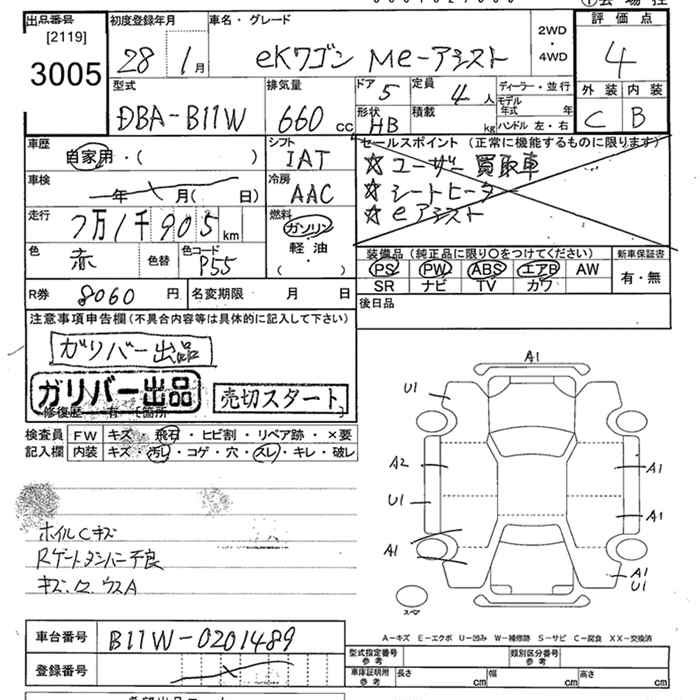 出品番号
[2119]
3005
初度登録年月
28 1月
車名・グレード
eKワゴン Me-アシスト
2WD
・
4WD
評価点
4
外装 内装
C B
型式
DBA-B11W
排気量
660 cc
ドア 5
定員 4人
形状 HB
積載 kg
ディーラー・並行
モデル年式 年
ハンドル 左・右
車歴
自家用・( )
シフト
IAT
セールスポイント (正常に機能するものに限ります)
☆ユーザー買取車
☆シートヒーター
☆eアシスト
車検
年 月( 日)
冷房
AAC
走行
7万1千905km
燃料
ガソリン
軽油
( ・ )
色
赤
色替
色コード
P55
装備品 (純正品に限り○をつけてください)
PS PW ABS エアB AW
SR ナビ TV カワ
新車保証書
有・無
R券 8060円
名変期限 月 日
後日品
注意事項申告欄 (不具合内容等は具体的に記入して下さい)
ガリバー出品
ガリバー出品
売切スタート
修復歴 有 [箇所 ]
検査員
記入欄
FW キズ・飛石・ヒビ割・リペア跡・×要
内装 キズ・汚レ・コゲ・穴・スレ・キレ・破レ
ホイルCキズ
Rゲートダンパー不良
A1
U1
A2
A1
U1
A1
A1
A1
U1
スペア
A-キズ E-エクボ U-凹み W-補修跡 S-サビ C-腐食 XX-交換済
車台番号
B11W-0201489
登録番号
型式指定番号
参考
類別区分番号
参考
車庫証明用
参考
長さ cm
幅 cm
高さ cm